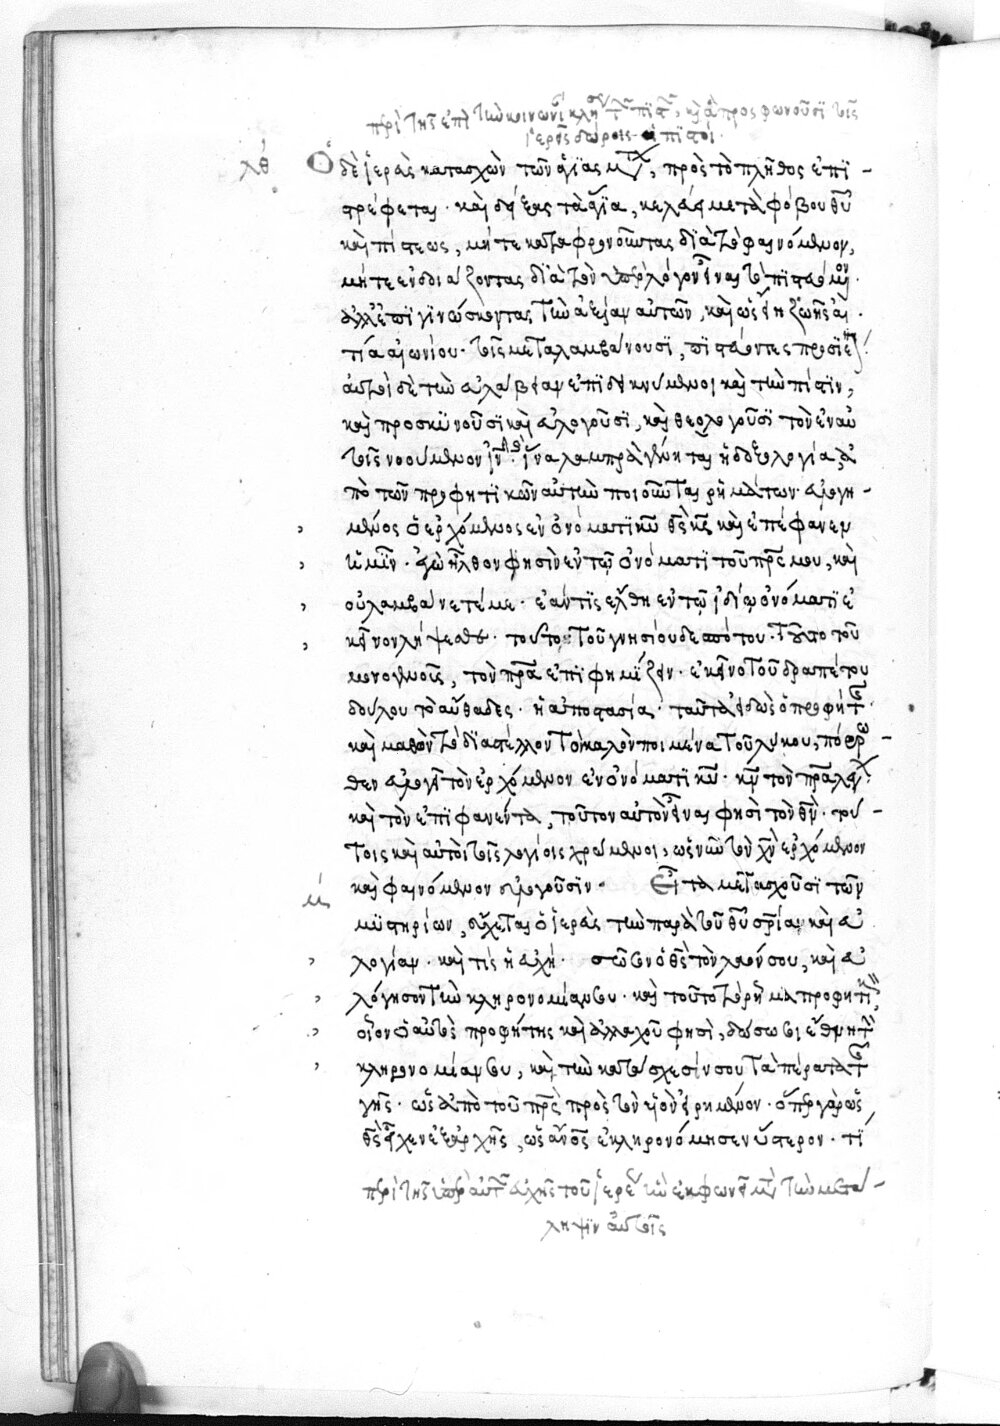 περὶ τῆς ἐπὶ τὴν κοινωνί κλήσ τ πιστ, κ ἃ προσφωνοῦσι τοῖς
ἱεροῖς δώροις οἱ πιστοί
λθ Ὁ δὲ ἱερεὺς κατασχὼν τῶν ἁγίας μυ, πρὸς τὸ πλῆθος ἐπι-
στρέφεται· καὶ δείξας τὰ ἅγια, καλεῖ μετὰ φόβου θυ
καὶ πίστεως, μήτε καταφρονοῦντας διὰ τὸ φαινόμενον,
μήτε ἐνδοιάζοντας διὰ τὸν ὑπὲρ λόγον εἶναι τὸ πιστευόμενον·
ἀλλ' ἐπιγινώσκοντας τὴν ἀξίαν αὐτῶν, καὶ ὡς εἴη ζωῆς αἰ
τία αἰωνίου τοῖς μεταλαμβάνουσι, πιστεύοντες προσιέ
αὐτοὶ δὲ τὴν εὐλάβειαν ἐπιδεικνύμενοι καὶ τὴν πίστιν,
καὶ προσκυνοῦσι καὶ εὐλογοῦσι, καὶ θεολογοῦσι τὸν ἐν αὐ
τοῖς νοούμενον ιν· ἵνα λαμπρὰ γένηται ἡ δοξολογία, ἀ
πὸ τῶν προφητικῶν αὐτὴν ποιοῦνται ῥημάτων· εὐλογη-
μένος ὁ ἐρχόμενος ἐν ὀνόματι κυ θς κς καὶ ἐπέφανεν
ἡμῖν· ἐγὼ ἦλθον φησὶν ἐν τῷ ὀνόματι τοῦ πρς μου, καὶ
οὐ λαμβάνετέ με· ἐάν τις ἔλθη ἐν τῷ ἰδίῳ ὀνόματι ἐ
κεῖνον λήψεσθε· τοῦτο τοῦ γνησίου δεσπότου· τοῦτο τοῦ
μονογενοῦς, τὸν πρα ἐπιφημίζειν· ἐκεῖνο τοῦ δραπέτου
δούλου τὸ αὔθαδες· ἡ ἀποστασία· ταῦτα εἰδὼς ὁ προφήτ·
καὶ μαθὼν τὸ διαστέλλον τὸν καλὸν ποιμένα τοῦ λύκου, πόρρω-
θεν εὐλογεῖ τὸν ἐρχόμενον ἐν ὀνόματι κυ· κν τὸν πρα λέγ·
καὶ τὸν ἐπιφανέντα, τοῦτον αὐτὸν εἶναι φησὶ τὸν θν· τού-
τοις καὶ αὐτοὶ τοῖς λογίοις χρώμενοι, ὡς νῦν τὸν χν ἐρχόμενον
μ καὶ φαινόμενον εὐλογοῦσιν· Εἶτα μετασχοῦσι τῶν
μυστηρίων, εὔχεται ὁ ἱερεὺς τὴν παρὰ τοῦ θυ σρίαν καὶ εὐ
λογίαν· καὶ τίς ἡ εὐχή· σῶσον ὁ θς τὸν λαόν σου, καὶ εὐ
λόγησον τὴν κληρονομίαν σου· καὶ τοῦτο τὸ ῥῆμα προφητι
οἷον ὁ αὐτὸς προφήτης καὶ ἀλλαχοῦ φησὶ, δώσω σοι ἔθνη τ
κληρονομίαν σου, καὶ τὴν κατάσχεσίν σου τὰ πέρατα τ
γῆς· ὡς ἀπὸ τοῦ πρς πρὸς τὸν υἱὸν εἰρημένον· ὅπερ γὰρ ὡς
θς εἶχεν ἐξαρχῆς, ὡς ανος ἐκληρονόμησεν ὕστερον· τί
περὶ τῆς ὑπὲρ αὐτ εὐχῆς τοῦ ἱερέ ἣν ἐκφωνεῖ μ τὴν μετά-
ληψιν αὐτοῖς